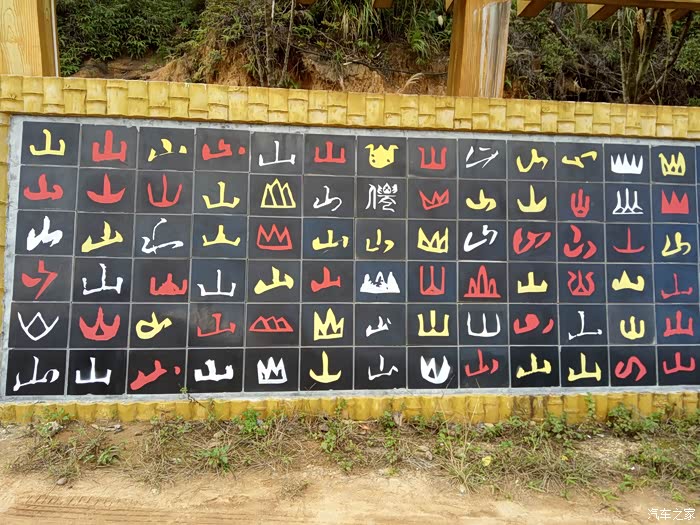 山山山山山山山山山山山山山
山山山山山山山山山山山山
山山山山山山山山山山山山山
山山山山山山山山山山山山山
山山山山山山山山山山山山山
山山山山山山山山山山山山山
汽车之家